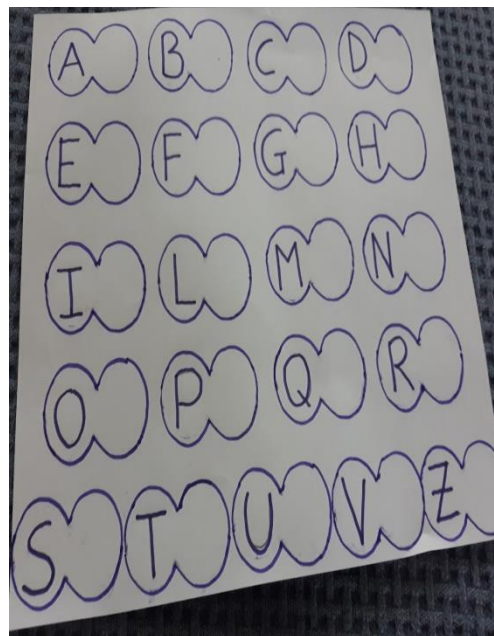 A B C D
E F G H
I L M N
O P Q R
S T U V Z